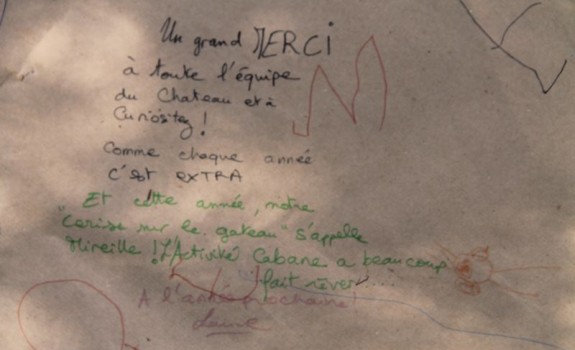 Un grand MERCI
à toute l'équipe
du Chateau et à
Curiositez !
Comme chaque année
c'est EXTRA
Et cette année, notre
"cerise sur le gateau" s'appelle
Mireille ! L'Activité Cabane a beaucoup
fait rêver....
A l'année prochaine !
Laure